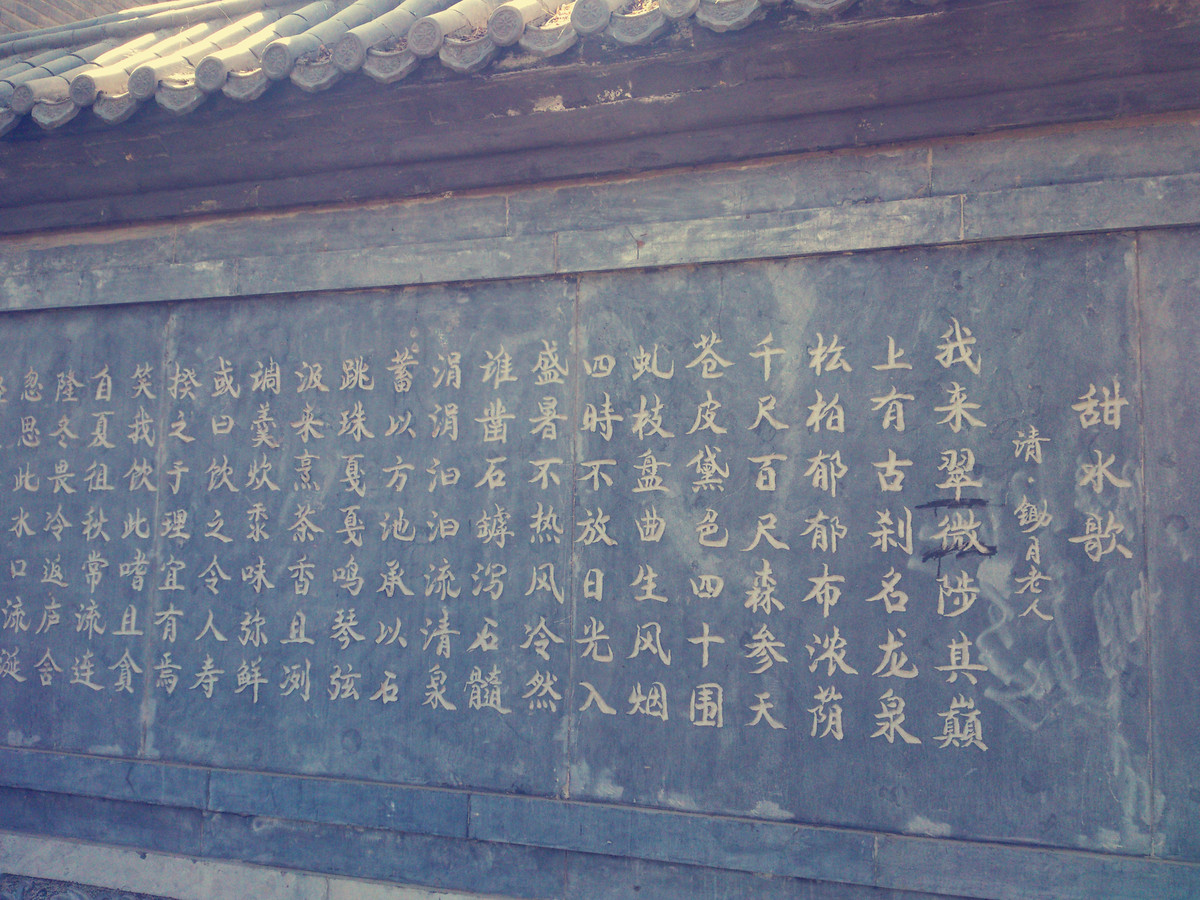 甜水歌
清·锄月老人
我来翠微陟其巅
上有古刹名龙泉
松柏郁郁布浓荫
千尺百尺森参天
苍皮黛色四十围
虬枝盘曲生风烟
四時不放日光入
盛暑不热风冷然
谁凿石罅泻石髓
涓涓汩汩流清泉
蓄以方池承以石
跳珠戛戛鸣琴弦
汲来烹茶香且冽
调羹炊黍味弥鲜
或曰饮之令人寿
揆之于理宜有焉
笑我饮此嗜且贪
自夏徂秋常流连
隆冬畏冷返庐舍
忽思此水口流涎